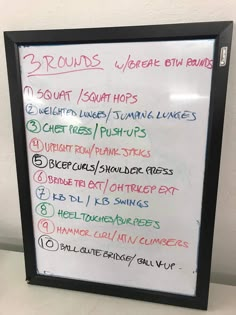 3 ROUNDS w/BREAK BTW ROUNDS
1 SQUAT / SQUAT HOPS
2 WEIGHTED LUNGES / JUMPING LUNGES
3 CHEST PRESS / PUSH-UPS
4 UPRIGHT ROW / PLANK JACKS
5 BICEP CURLS / SHOULDER PRESS
6 BRIDGE TRI EXT / OH TRICEP EXT
7 KB DL / KB SWINGS
8 HEEL TOUCHES / BURPEES
9 HAMMER CURL / MTN CLIMBERS
10 BALL GLUTE BRIDGE / BALL V-UP